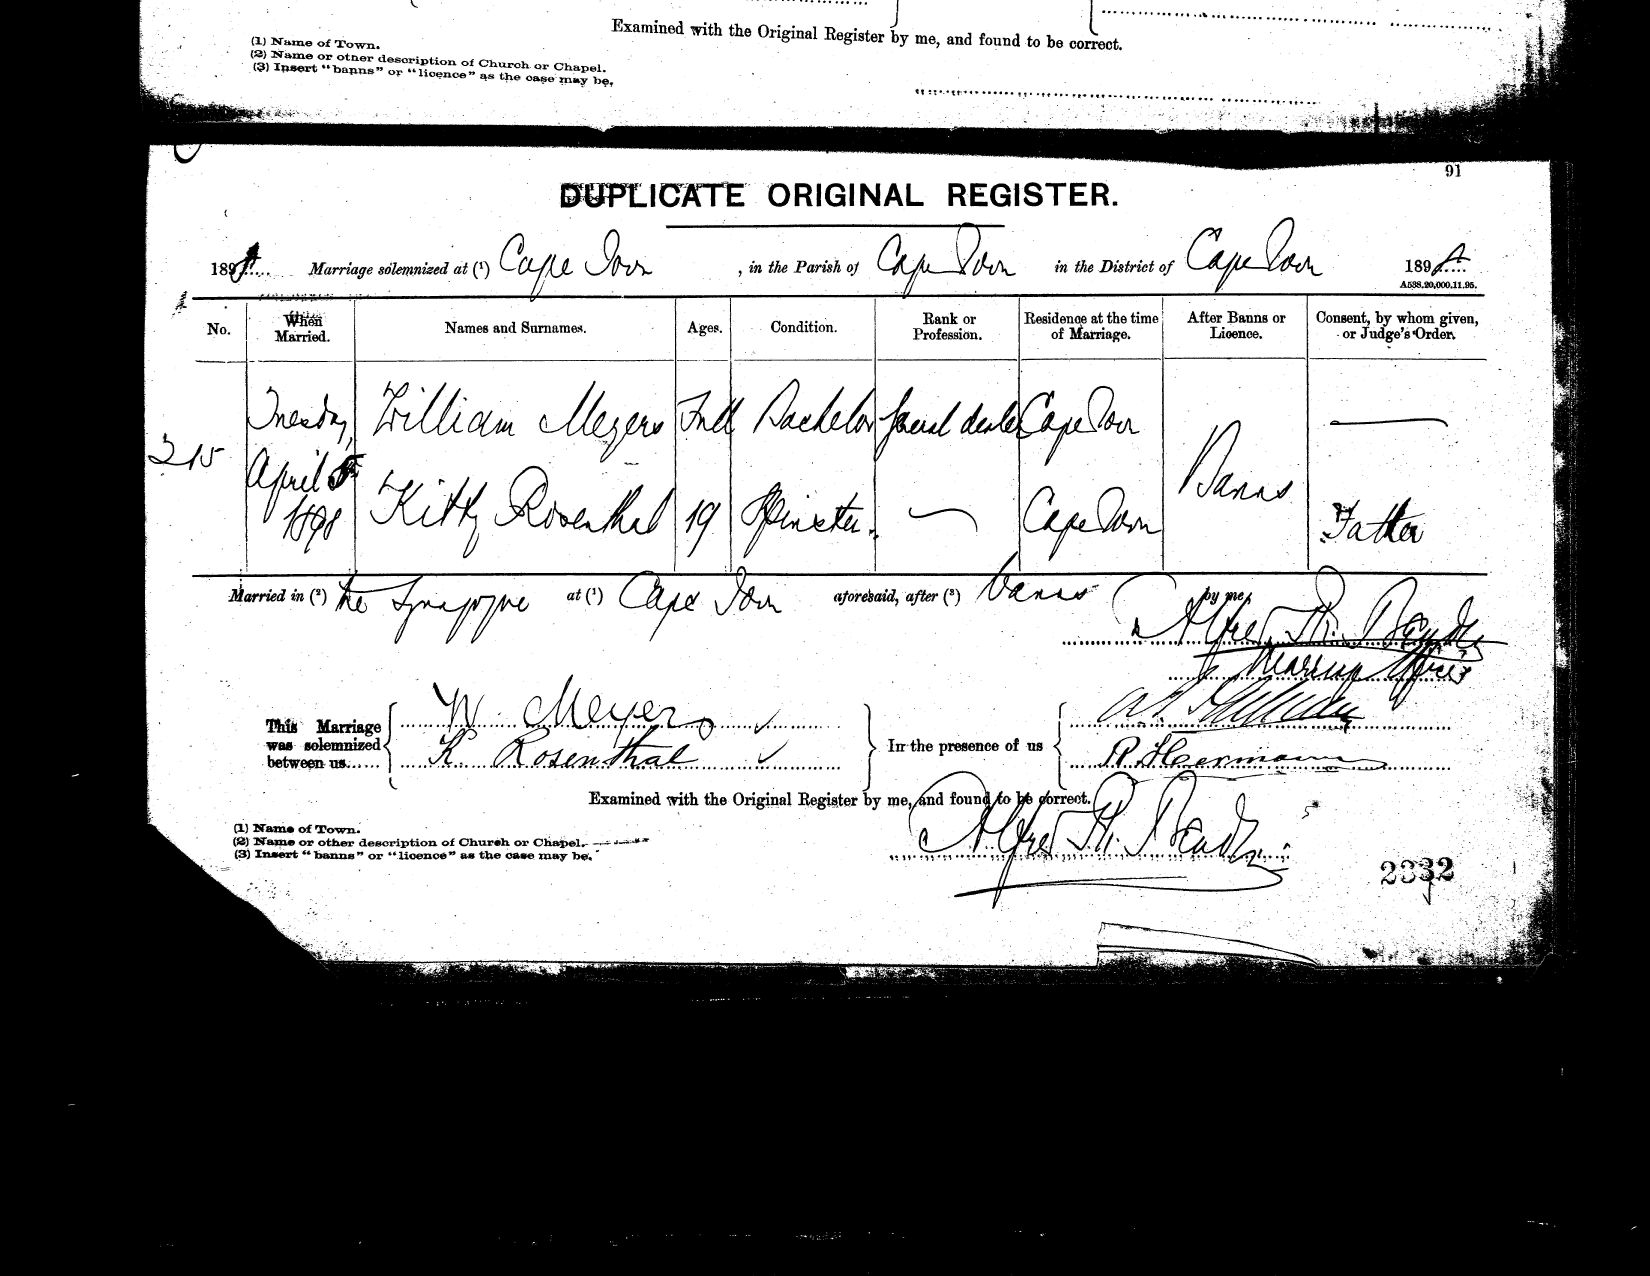 Examined with the Original Register by me, and found to be correct.
(1) Name of Town.
(2) Name or other description of Church or Chapel.
(3) Insert "banns" or "licence" as the case may be.
91
DUPLICATE ORIGINAL REGISTER.
1898 Marriage solemnized at (¹) Cape Town, in the Parish of Cape Town in the District of Cape Town 1898
A538.20,000.11.95.
No. When Married. Names and Surnames. Ages. Condition. Rank or Profession. Residence at the time of Marriage. After Banns or Licence. Consent, by whom given, or Judge's Order.
215 Tuesday, April 5 1898 William Meyers Full Bachelor General dealer Cape Town Banns —
Kitty Rosenthal 19 Spinster. — Cape Town Father
Married in (²) the Synagogue at (¹) Cape Town aforesaid, after (³) banns by me,
Alfred P. Bender
Marriage Officer
This Marriage was solemnized between us...... { W Meyers
K Rosenthal } In the presence of us {
R. Hermann
Examined with the Original Register by me, and found to be correct.
Alfred P. Bender
(1) Name of Town.
(2) Name or other description of Church or Chapel.
(3) Insert "banns" or "licence" as the case may be.
2332